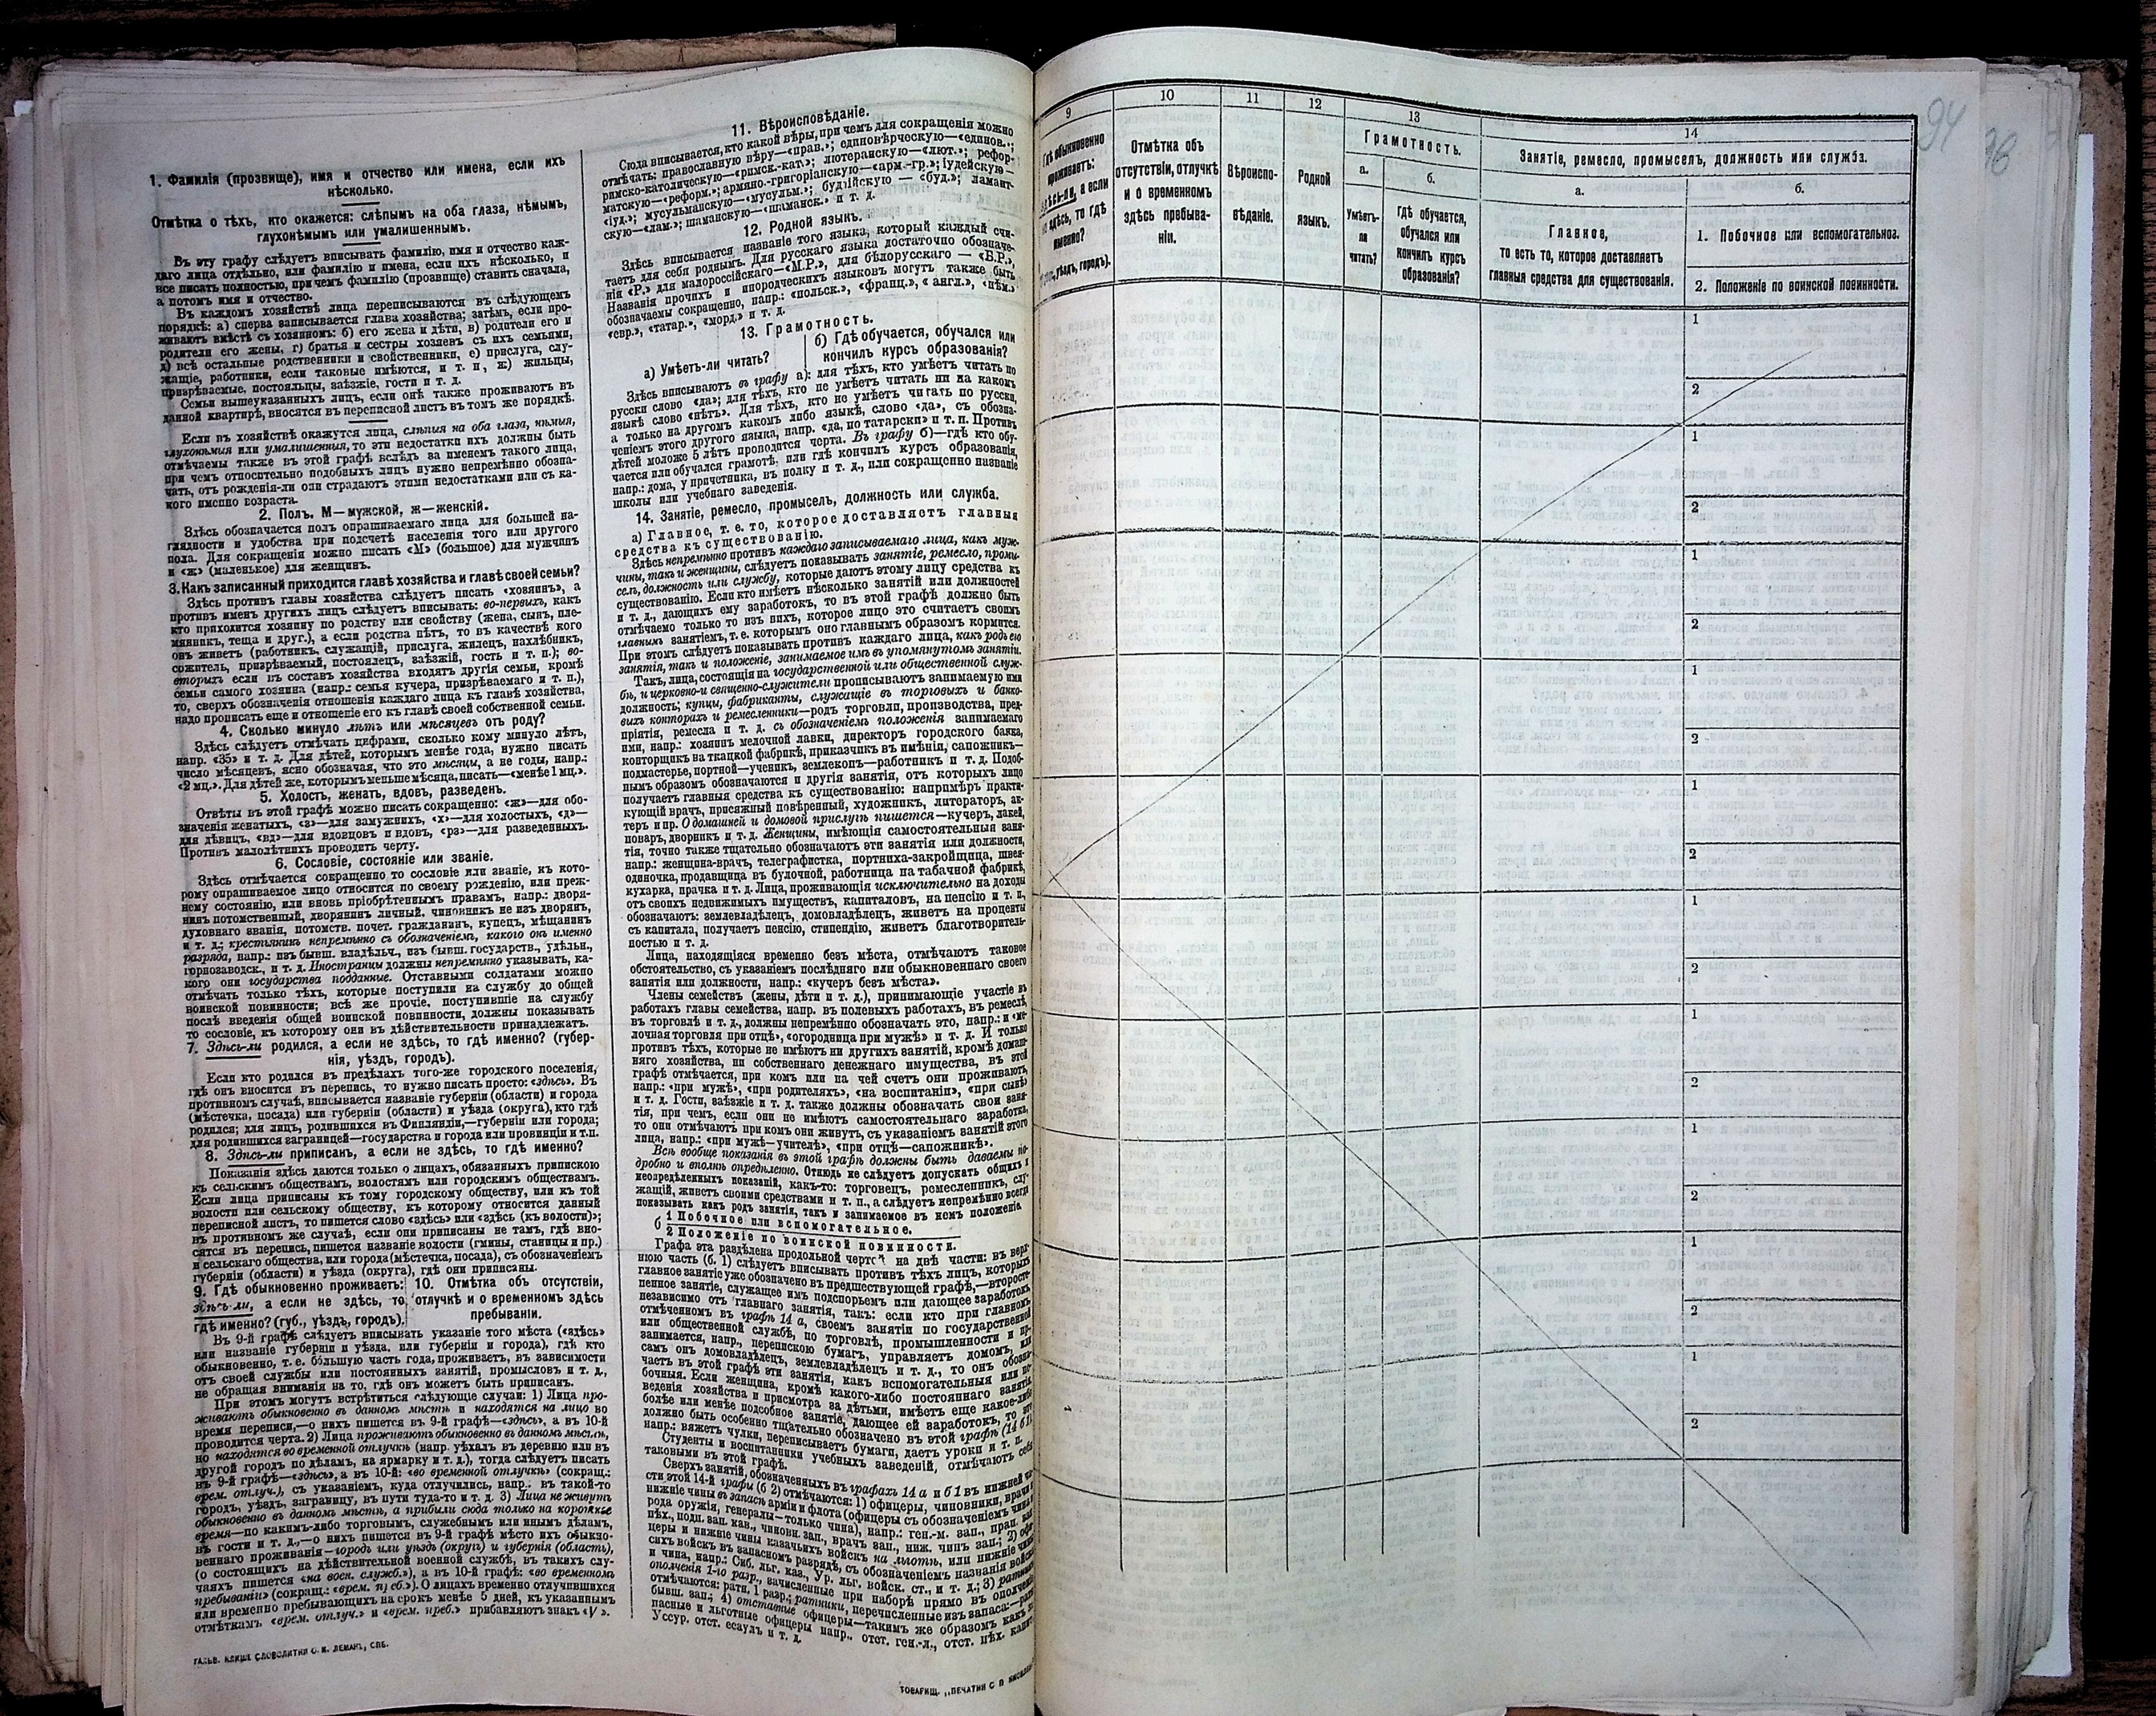 1. Фамилія (прозвище), имя и отчество или имена, если ихъ
нѣсколько.
Отмѣтка о тѣхъ, кто окажется: слѣпымъ на оба глаза, нѣмымъ,
глухонѣмымъ или умалишеннымъ.
Въ эту графу слѣдуетъ вписывать фамилію, имя и отчество каж-
даго лица отдѣльно, или фамилію и имена, если ихъ нѣсколько, и
все писать полностью, при чемъ фамилію (прозвище) ставить сначала,
а потомъ имя и отчество.
Въ каждомъ хозяйствѣ лица переписываются въ слѣдующемъ
порядкѣ: а) сперва записывается глава хозяйства; затѣмъ, если про-
живаютъ вмѣстѣ съ хозяиномъ: б) его жена и дѣти, в) родители его и
родители его жены, г) братья и сестры хозяевъ съ ихъ семьями,
д) всѣ остальные родственники и свойственники, е) прислуга, слу-
жащіе, работники, если таковые имѣются, и т. п, ж) жильцы,
призрѣваемые, постояльцы, заѣзжіе, гости и т. д.
Семьи вышеуказанныхъ лицъ, если онѣ также проживаютъ въ
данной квартирѣ, вносятся въ переписной листъ въ томъ же порядкѣ.
Если въ хозяйствѣ окажутся лица, слѣпыя на оба глаза, нѣмыя,
глухонѣмыя или умалишенныя, то эти недостатки ихъ должны быть
отмѣчаемы также въ этой графѣ вслѣдъ за именемъ такого лица,
при чемъ относительно подобныхъ лицъ нужно непремѣнно обозна-
чать, отъ рожденія-ли они страдаютъ этими недостатками или съ ка-
кого именно возраста.
2. Полъ. М—мужской, ж—женскій.
Здѣсь обозначается полъ опрашиваемаго лица для большей на-
глядности и удобства при подсчетѣ населенія того или другого
пола. Для сокращенія можно писать «М» (большое) для мужчинъ
и «ж» (маленькое) для женщинъ.
3. Какъ записанный приходится главѣ хозяйства и главѣ своей семьи?
Здѣсь противъ главы хозяйства слѣдуетъ писать «хозяинъ», а
противъ именъ другихъ лицъ слѣдуетъ вписывать: во-первыхъ, какъ
кто приходится хозяину по родству или свойству (жена, сынъ, пле-
мянникъ, теща и друг.), а если родства нѣтъ, то въ качествѣ кого
онъ живетъ (работникъ, служащій, прислуга, жилецъ, нахлѣбникъ,
сожитель, призрѣваемый, постоялецъ, заѣзжій, гость и т. п.); во-
вторыхъ если въ составъ хозяйства входятъ другія семьи, кромѣ
семьи самого хозяина (напр.: семья кучера, призрѣваемаго и т. п.),
то, сверхъ обозначенія отношенія каждаго лица къ главѣ хозяйства,
надо прописать еще и отношеніе его къ главѣ своей собственной семьи.
4. Сколько минуло лѣтъ или мѣсяцевъ отъ роду?
Здѣсь слѣдуетъ отмѣчать цифрами, сколько кому минуло лѣтъ,
напр. «35» и т. д. Для дѣтей, которымъ менѣе года, нужно писать
число мѣсяцевъ, ясно обозначая, что это мѣсяцы, а не годы, напр.:
«2 мц.». Для дѣтей же, которымъ меньше мѣсяца, писать—«менѣе 1 мц.».
5. Холостъ, женатъ, вдовъ, разведенъ.
Отвѣты въ этой графѣ можно писать сокращенно: «ж»—для обо-
значенія женатыхъ, «з»—для замужнихъ, «х»—для холостыхъ, «д»—
для дѣвицъ, «вд»—для вдовцовъ и вдовъ, «рз»—для разведенныхъ.
Противъ малолѣтнихъ проводить черту.
6. Сословіе, состояніе или званіе.
Здѣсь отмѣчается сокращенно то сословіе или званіе, къ кото-
рому опрашиваемое лицо относится по своему рожденію, или преж-
нему состоянію, или вновь пріобрѣтеннымъ правамъ, напр.: дворя-
нинъ потомственный, дворянинъ личный, чиновникъ не изъ дворянъ,
духовнаго званія, потомств. почет. гражданинъ, купецъ, мѣщанинъ
и т. д.; крестьянинъ непремѣнно съ обозначеніемъ, какого онъ именно
разряда, напр.: изъ бывш. владѣльч., изъ бывш. государств., удѣльн.,
горнозаводск., и т. д. Иностранцы должны непремѣнно указывать, ка-
кого они государства подданные. Отставными солдатами можно
отмѣчать только тѣхъ, которые поступили на службу до общей
воинской повинности; всѣ же прочіе, поступившіе на службу
послѣ введенія общей воинской повинности, должны показывать
то сословіе, къ которому они въ дѣйствительности принадлежатъ.
7. Здѣсь-ли родился, а если не здѣсь, то гдѣ именно? (губер-
нія, уѣздъ, городъ).
Если кто родился въ предѣлахъ того-же городского поселенія,
гдѣ онъ вносится въ перепись, то нужно писать просто: «здѣсь». Въ
противномъ случаѣ, вписывается названіе губерніи (области) и города
(мѣстечка, посада) или губерніи (области) и уѣзда (округа), кто гдѣ
родился; для лицъ, родившихся въ Финляндіи,—губерніи или города;
для родившихся заграницей—государства и города или провинціи и т.п.
8. Здѣсь-ли приписанъ, а если не здѣсь, то гдѣ именно?
Показанія здѣсь даются только о лицахъ, обязанныхъ припискою
къ сельскимъ обществамъ, волостямъ или городскимъ обществамъ.
Если лица приписаны къ тому городскому обществу, или къ той
волости или сельскому обществу, къ которому относится данный
переписной листъ, то пишется слово «здѣсь» или «здѣсь (къ волости)»;
въ противномъ же случаѣ, если они приписаны не тамъ, гдѣ вно-
сятся въ перепись, пишется названіе волости (гмины, станицы и пр.)
и сельскаго общества, или города (мѣстечка, посада), съ обозначеніемъ
губерніи (области) и уѣзда (округа), гдѣ они приписаны.
9. Гдѣ обыкновенно проживаетъ:
здѣсь-ли, а если не здѣсь, то
гдѣ именно? (губ., уѣздъ, городъ).
10. Отмѣтка объ отсутствіи,
отлучкѣ и о временномъ здѣсь
пребываніи.
Въ 9-й графѣ слѣдуетъ вписывать указаніе того мѣста («здѣсь»
или названіе губерніи и уѣзда, или губерніи и города), гдѣ кто
обыкновенно, т. е. бо́льшую часть года, проживаетъ, въ зависимости
отъ своей службы или постоянныхъ занятій, промысловъ и т. д.,
не обращая вниманія на то, гдѣ онъ можетъ быть приписанъ.
При этомъ могутъ встрѣтиться слѣдующіе случаи: 1) Лица про-
живаютъ обыкновенно въ данномъ мѣстѣ и находятся на лицо во
время переписи,—о нихъ пишется въ 9-й графѣ—«здѣсь», а въ 10-й
проводится черта. 2) Лица проживаютъ обыкновенно въ данномъ мѣстѣ,
но находятся во временной отлучкѣ (напр. уѣхалъ въ деревню или въ
другой городъ по дѣламъ, на ярмарку и т. д.), тогда слѣдуетъ писать
въ 9-й графѣ—«здѣсь», а въ 10-й: «во временной отлучкѣ» (сокращ.:
врем. отлуч.), съ указаніемъ, куда отлучились, напр.: въ такой-то
городъ, уѣздъ, заграницу, въ пути туда-то и т. д. 3) Лица не живутъ
обыкновенно въ данномъ мѣстѣ, а прибыли сюда только на короткое
время—по какимъ-либо торговымъ, служебнымъ или инымъ дѣламъ,
въ гости и т. д.,—о нихъ пишется въ 9-й графѣ мѣсто ихъ обыкно-
веннаго проживанія—городъ или уѣздъ (округъ) и губернія (область),
(о состоящихъ на дѣйствительной военной службѣ, въ такихъ слу-
чаяхъ пишется «на воен. служб.»), а въ 10-й графѣ: «во временномъ
пребываніи» (сокращ.: «врем. преб.»). О лицахъ временно отлучившихся
или временно пребывающихъ на срокъ менѣе 5 дней, къ указаннымъ
отмѣткамъ «врем. отлуч.» и «врем. преб.» прибавляютъ знакъ «V».
ГАЛЬВ. КЛИШЕ СЛОВОЛИТНИ О. И. ЛЕМАНЪ, СПБ.
11. Вѣроисповѣданіе.
Сюда вписывается, кто какой вѣры, при чемъ для сокращенія можно
отмѣчать: православную вѣру—«прав.»; единовѣрческую—«единов.»;
римско-католическую—«римск.-кат.»; лютеранскую—«лют.»; рефор-
матскую—«реформ.»; армяно.-григоріанскую—«арм.-гр.»; іудейскую—
«іуд.»; мусульманскую—«мусульм.»; буддійскую—«буд.»; ламаит-
скую—«лам.»; шаманскую—«шаманск.» и т. д.
12. Родной языкъ.
Здѣсь вписывается названіе того языка, который каждый счи-
таетъ для себя роднымъ. Для русскаго языка достаточно обозначе-
нія «Р.» для малороссійскаго—«М.Р.», для бѣлорусскаго—«Б.Р.»,
Названія прочихъ и инородческихъ языковъ могутъ также быть
обозначаемы сокращенно, напр.: «польск.», «франц.», «англ.», «нѣм.»
«евр.», «татар.», «морд.» и т. д.
13. Грамотность.
а) Умѣетъ-ли читать?
б) Гдѣ обучается, обучался или
кончилъ курсъ образованія?
Здѣсь вписываютъ въ графу а): для тѣхъ, кто умѣетъ читать по
русски слово «да»; для тѣхъ, кто не умѣетъ читать ни на какомъ
языкѣ слово «нѣтъ». Для тѣхъ, кто не умѣетъ читать по русски,
а только на другомъ какомъ либо языкѣ, слово «да», съ обозна-
ченіемъ этого другого языка, напр. «да, по татарски» и т. п. Противъ
дѣтей моложе 5 лѣтъ проводится черта. Въ графу б)—гдѣ кто обу-
чается или обучался грамотѣ, или гдѣ кончилъ курсъ образованія,
напр.: дома, у причетника, въ полку и т. д., или сокращенно названіе
школы или учебнаго заведенія.
14. Занятіе, ремесло, промыселъ, должность или служба.
а) Главное, т. е. то, которое доставляетъ главныя
средства къ существованію.
Здѣсь непремѣнно противъ каждаго записываемаго лица, какъ муж-
чины, такъ и женщины, слѣдуетъ показывать занятіе, ремесло, промы-
селъ, должность или службу, которые даютъ этому лицу средства къ
существованію. Если кто имѣетъ нѣсколько занятій или должностей
и т. д., дающихъ ему заработокъ, то въ этой графѣ должно быть
отмѣчаемо только то изъ нихъ, которое лицо это считаетъ своимъ
главнымъ занятіемъ, т. е. которымъ оно главнымъ образомъ кормится.
При этомъ слѣдуетъ показывать противъ каждаго лица, какъ родъ его
занятія, такъ и положеніе, занимаемое имъ въ упомянутомъ занятіи.
Такъ, лица, состоящія на государственной или общественной служ-
бѣ, и церковно-и священно-служители прописываютъ занимаемую ими
должность; купцы, фабриканты, служащіе въ торговыхъ и банко-
выхъ конторахъ и ремесленники—родъ торговли, производства, пред-
пріятія, ремесла и т. д. съ обозначеніемъ положенія занимаемаго
ими, напр.: хозяинъ мелочной лавки, директоръ городского банка,
конторщикъ на ткацкой фабрикѣ, приказчикъ въ имѣніи, сапожникъ—
подмастерье, портной—ученикъ, землекопъ—работникъ и т. д. Подоб-
нымъ образомъ обозначаются и другія занятія, отъ которыхъ лицо
получаетъ главныя средства къ существованію: напримѣръ практи-
кующій врачъ, присяжный повѣренный, художникъ, литераторъ, ак-
теръ и пр. О домашней и домовой прислугѣ пишется—кучеръ, лакей,
поваръ, дворникъ и т. д. Женщины, имѣющія самостоятельныя заня-
тія, точно также тщательно обозначаютъ эти занятія или должности,
напр.: женщина-врачъ, телеграфистка, портниха-закройщица, швея-
одиночка, продавщица въ булочной, работница на табачной фабрикѣ,
кухарка, прачка и т. д. Лица, проживающія исключительно на доходы
отъ своихъ недвижимыхъ имуществъ, капиталовъ, на пенсію и т. п.,
обозначаютъ: землевладѣлецъ, домовладѣлецъ, живетъ на проценты
съ капитала, получаетъ пенсію, стипендію, живетъ благотворитель-
ностью и т. д.
Лица, находящіяся временно безъ мѣста, отмѣчаютъ таковое
обстоятельство, съ указаніемъ послѣдняго или обыкновеннаго своего
занятія или должности, напр.: «кучеръ безъ мѣста».
Члены семействъ (жены, дѣти и т. д.), принимающіе участіе въ
работахъ главы семейства, напр. въ полевыхъ работахъ, въ ремеслѣ,
въ торговлѣ и т. д., должны непремѣнно обозначать это, напр.: и «ме-
лочная торговля при отцѣ», «огородница при мужѣ» и т. д. И только
противъ тѣхъ, которые не имѣютъ ни другихъ занятій, кромѣ домаш-
няго хозяйства, ни собственнаго денежнаго имущества, въ этой
графѣ отмѣчается, при комъ или на чей счетъ они проживаютъ,
напр.: «при мужѣ», «при родителяхъ», «на воспитаніи», «при сынѣ»
и т. д. Гости, заѣзжіе и т. д. также должны обозначать свои заня-
тія, при чемъ, если они не имѣютъ самостоятельнаго заработка,
то они отмѣчаютъ при комъ они живутъ, съ указаніемъ занятій этого
лица, напр.: «при мужѣ—учителѣ», «при отцѣ—сапожникѣ».
Всѣ вообще показанія въ этой графѣ должны быть даваемы по-
дробно и вполнѣ опредѣленно. Отнюдь не слѣдуетъ допускать общихъ и
неопредѣленныхъ показаній, какъ-то: торговецъ, ремесленникъ, слу-
жащій, живетъ своими средствами и т. п., а слѣдуетъ непремѣнно всегда
показывать какъ родъ занятія, такъ и занимаемое въ немъ положеніе.
б 1 Побочное или вспомогательное.
2 Положеніе по воинской повинности.
Графа эта раздѣлена продольной чертой на двѣ части: въ верх-
нюю часть (б. 1) слѣдуетъ вписывать противъ тѣхъ лицъ, которыхъ
главное занятіе уже обозначено въ предшествующей графѣ,—второсте-
пенное занятіе, служащее имъ подспорьемъ или дающее заработокъ,
независимо отъ главнаго занятія, такъ: если кто при главномъ
отмѣченномъ въ графѣ 14 а, своемъ занятіи по государственной
или общественной службѣ, по торговлѣ, промышленности и пр.
занимается, напр., перепискою бумагъ, управляетъ домомъ, или
самъ онъ домовладѣлецъ, землевладѣлецъ и т. д., то онъ обозна-
чаетъ въ этой графѣ эти занятія, какъ вспомогательныя или по-
бочныя. Если женщина, кромѣ какого-либо постояннаго занятія,
веденія хозяйства и присмотра за дѣтьми, имѣетъ еще какое-либо
болѣе или менѣе подсобное занятіе, дающее ей заработокъ, то это
должно быть особенно тщательно обозначено въ этой графѣ (14 б 1),
напр.: вяжетъ чулки, переписываетъ бумаги, даетъ уроки и т. п.
Студенты и воспитанники учебныхъ заведеній, отмѣчаютъ себя
таковыми въ этой графѣ.
Сверхъ занятій, обозначенныхъ въ графахъ 14 а и б 1 въ нижней ча-
сти этой 14-й графы (б 2) отмѣчаются: 1) офицеры, чиновники, врачи и
нижніе чины въ запасѣ арміи и флота (офицеры съ обозначеніемъ чина и
рода оружія, генералы—только чина), напр.: ген.-м. зап., прап. зап.
пѣх., подп. зап. кав., чиновн. зап., врачъ зап., ниж. чинъ зап.; 2) офи-
церы и нижніе чины казачьихъ войскъ на льготѣ, или нижніе чины
сихъ войскъ въ запасномъ разрядѣ, съ обозначеніемъ названія войска
и чина, напр.: Сиб. льг. каз., Ур. льг. войск. ст., и т. д.; 3) ратники
ополченія 1-го разр., зачисленные при наборѣ прямо въ ополченіе
отмѣчаются: ратн. 1 разр.; ратники, перечисленные изъ запаса:—ратн.
бывш. зап.; 4) отставные офицеры—такимъ же образомъ какъ за-
пасные и льготные офицеры напр.. отст. ген.-л., отст. пѣх. капит.
Уссур. отст. есаулъ и т. д.
94
96
9
обыкновенно
проживаетъ:
здѣсь-ли, а если
не здѣсь, то гдѣ
именно?
уѣздъ, городъ).
10
Отмѣтка объ
отсутствіи, отлучкѣ
и о временномъ
здѣсь пребыва-
ніи.
11
Вѣроиспо-
вѣданіе.
12
Родной
языкъ.
13
Грамотность.
а.
Умѣетъ-
ли
читать?
б.
Гдѣ обучается,
обучался или
кончилъ курсъ
образованія?
14
Занятіе, ремесло, промыселъ, должность или служба.
а.
Главное,
то есть то, которое доставляетъ
главныя средства для существованія.
б.
1. Побочное или вспомогательное.
2. Положеніе по воинской повинности.
1
2
1
2
1
2
1
2
1
2
1
2
1
2
1
2
1
2
1
2